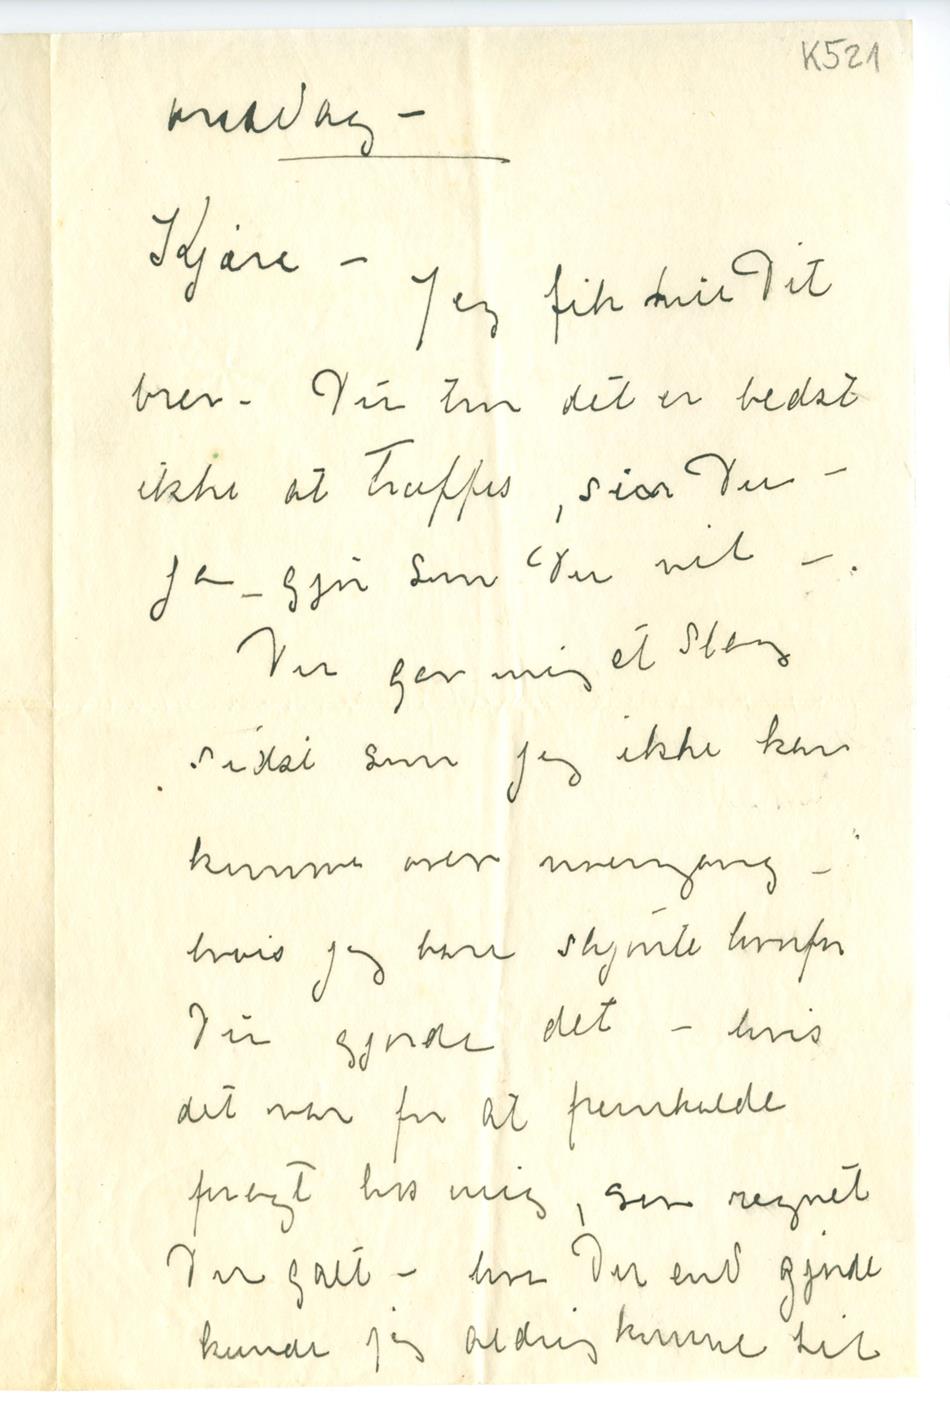 K521
onsdag –
Kjære –
Jeg fik Dit
brev – Du tror det er bedst
ikke at træffes, sier Du –
Ja – gjør som Du vil –.
Du gav mig et slag
sidst som jeg ikke kan
komme over noengang –
hvis jeg bare skjønte hvorfor
Du gjorde det – hvis
det var for at fremkalde
foragt hos mig, saa regnet
Du galt – hva Du end gjorde
kunde jeg aldrig komme til